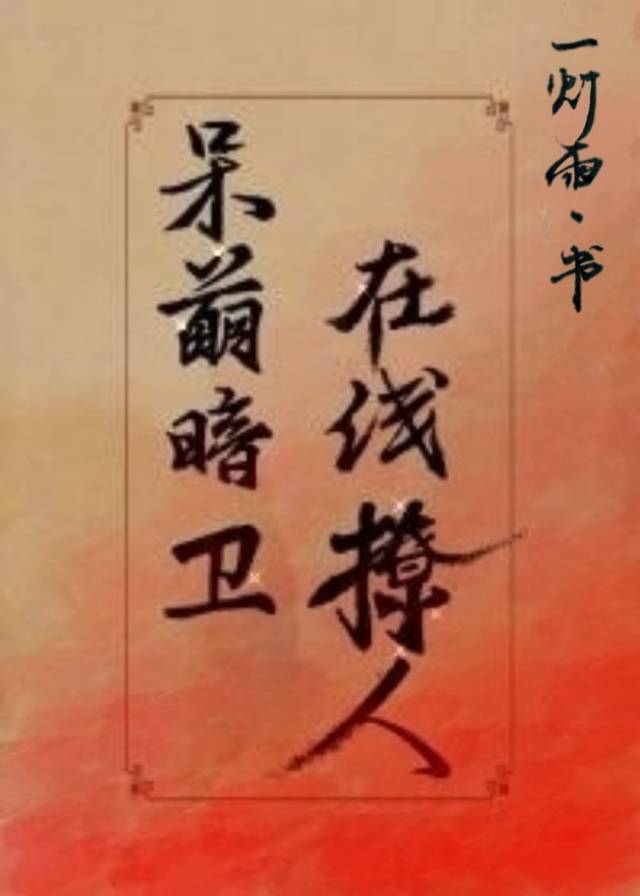 呆萌暗卫
在线撩人
一灯雨、书